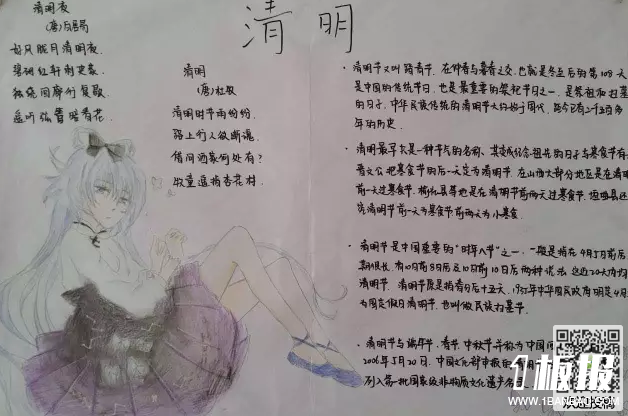 清明夜
(唐)白居易
好风胧月清明夜,
碧砌红轩刺史家.
独绕回廊行复歇
遥听弦管暗看花.
清明
(唐)杜牧
清明时节雨纷纷.
路上行人欲断魂.
借问酒家何处有?
牧童遥指杏花村.
清明
· 清明节又叫踏青节,在仲春与暮春之交,也就是冬至后的第108天
是中国的传统节日,也是最重要的祭祀节日之一,是祭祖和扫墓
的日子,中华民族传统的清明节大约始于周代,距今已有二千五百多
年的历史.
· 清明最早只是一种节气的名称,其变成纪念祖先的日子与寒食节有
晋文公把寒食节的后一天定为清明节.在山西大部分地区是在清明
前一天过寒食节,榆社县等地是在清明节前两天过寒食节,垣曲县还
清明节前一天为寒食节前两天为小寒食.
· 清明节是中国重要的"时年八节"之一,一般是指在4月5日前后
期很长,有10日前8日后及10日前10日后两种说法,这近20天内均
清明节. 清明节原是指春分后十五天,1935年中华民国政府明定4月
为国定假日清明节,也叫做民族扫墓节.
· 清明节与端午节.春节.中秋节并称为中国
2006年5月20日,中国文化部申报的清明节
列入第一批国家级非物质文化遗产名
1板报
WWW.1BANBAO.COM
欢迎投稿